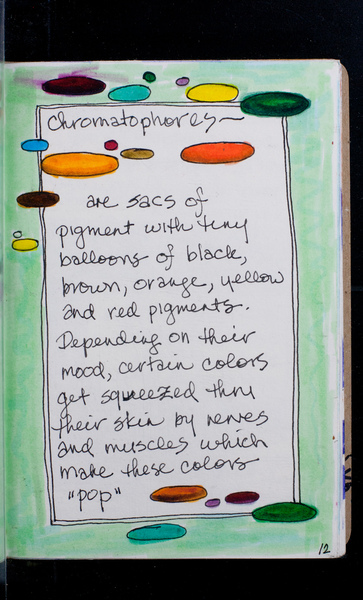 Chromatophores~
are sacs of
pigment with tiny
balloons of black,
brown, orange, yellow
and red pigments.
Depending on their
mood, certain colors
get squeezed thru
their skin by nerves
and muscles which
make these colors
"pop"
12